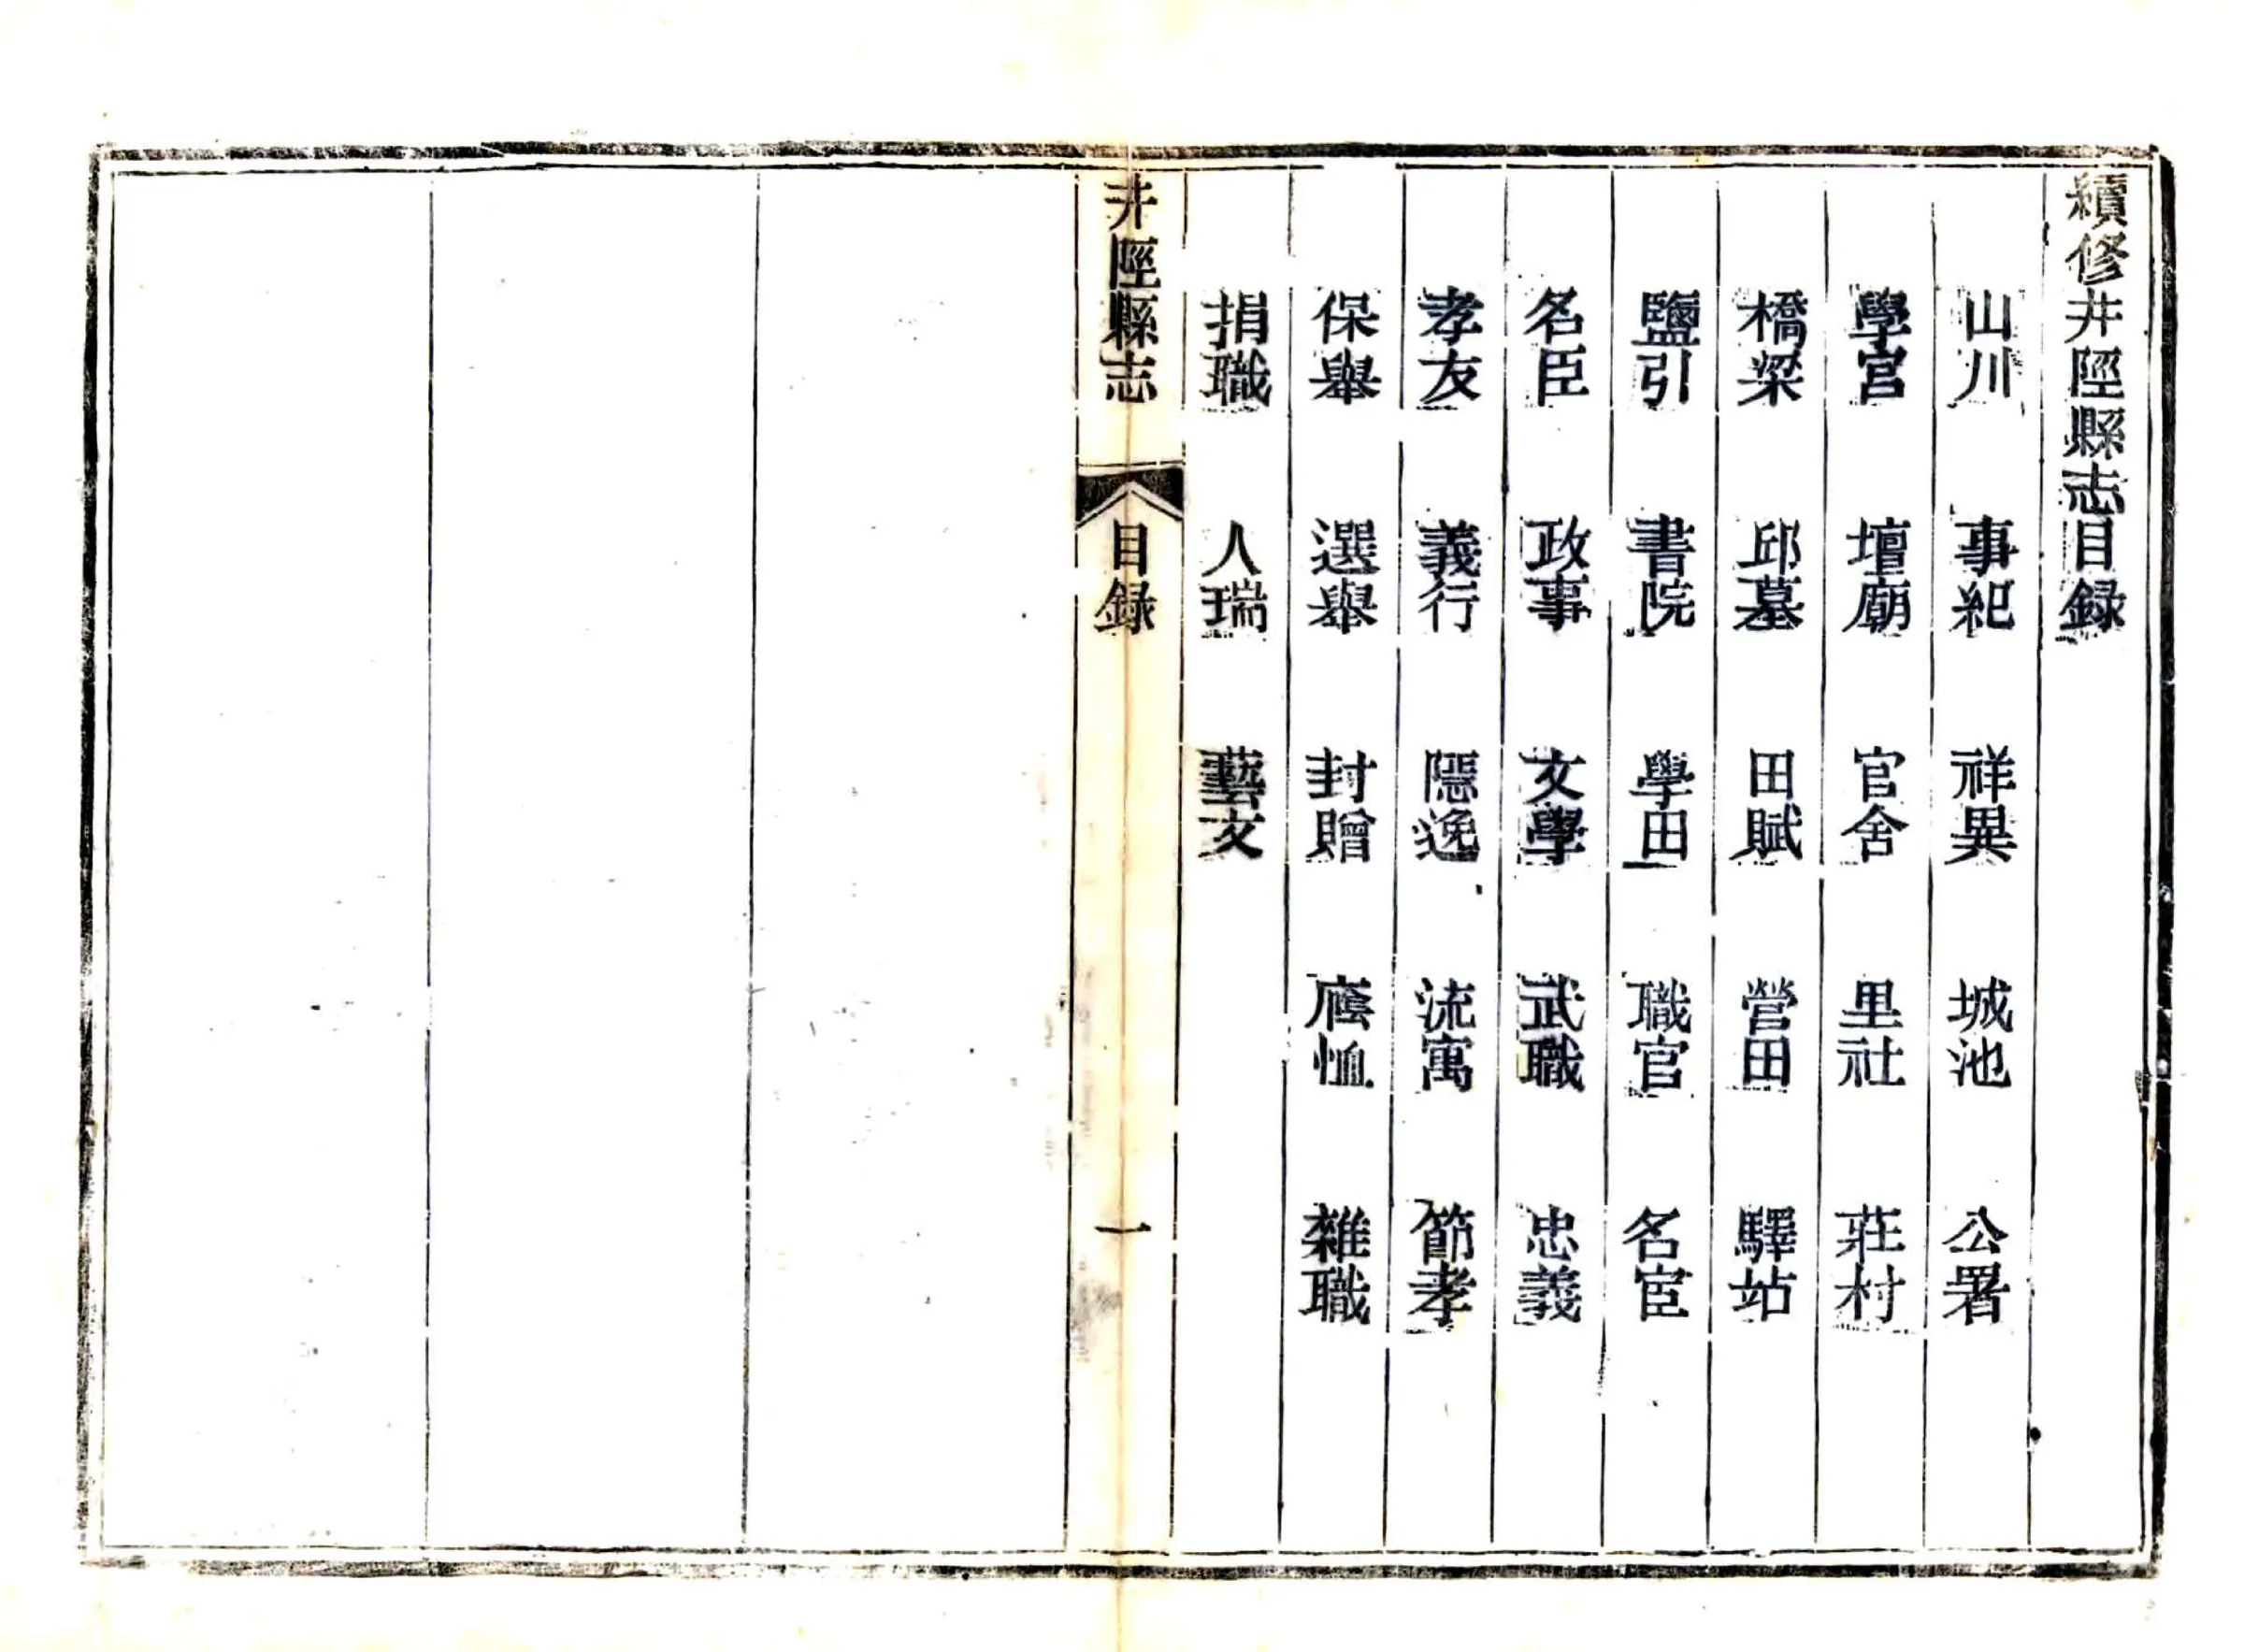 續修井陘縣志目録
山川 事紀 祥異 城池 公署
學宮 壇廟 官舍 里社 莊村
橋梁 邱墓 田賦 營田 驛站
鹽引 書院 學田 職官 名宦
名臣 政事 文學 武職 忠義
孝友 義行 隱逸 流寓 節孝
保舉 選舉 封贈 廕恤 雜職
捐職 人瑞 藝文
井陘縣志 目録 一